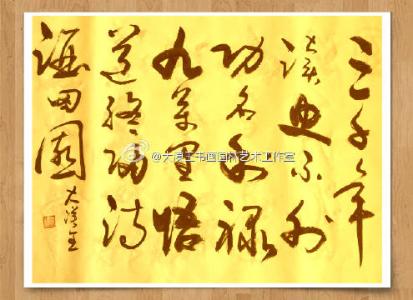 三千年
读史不外
功名利禄
九萬里悟
道终归诗
酒田園
大漠王
@大漠王书画国际艺术工作室